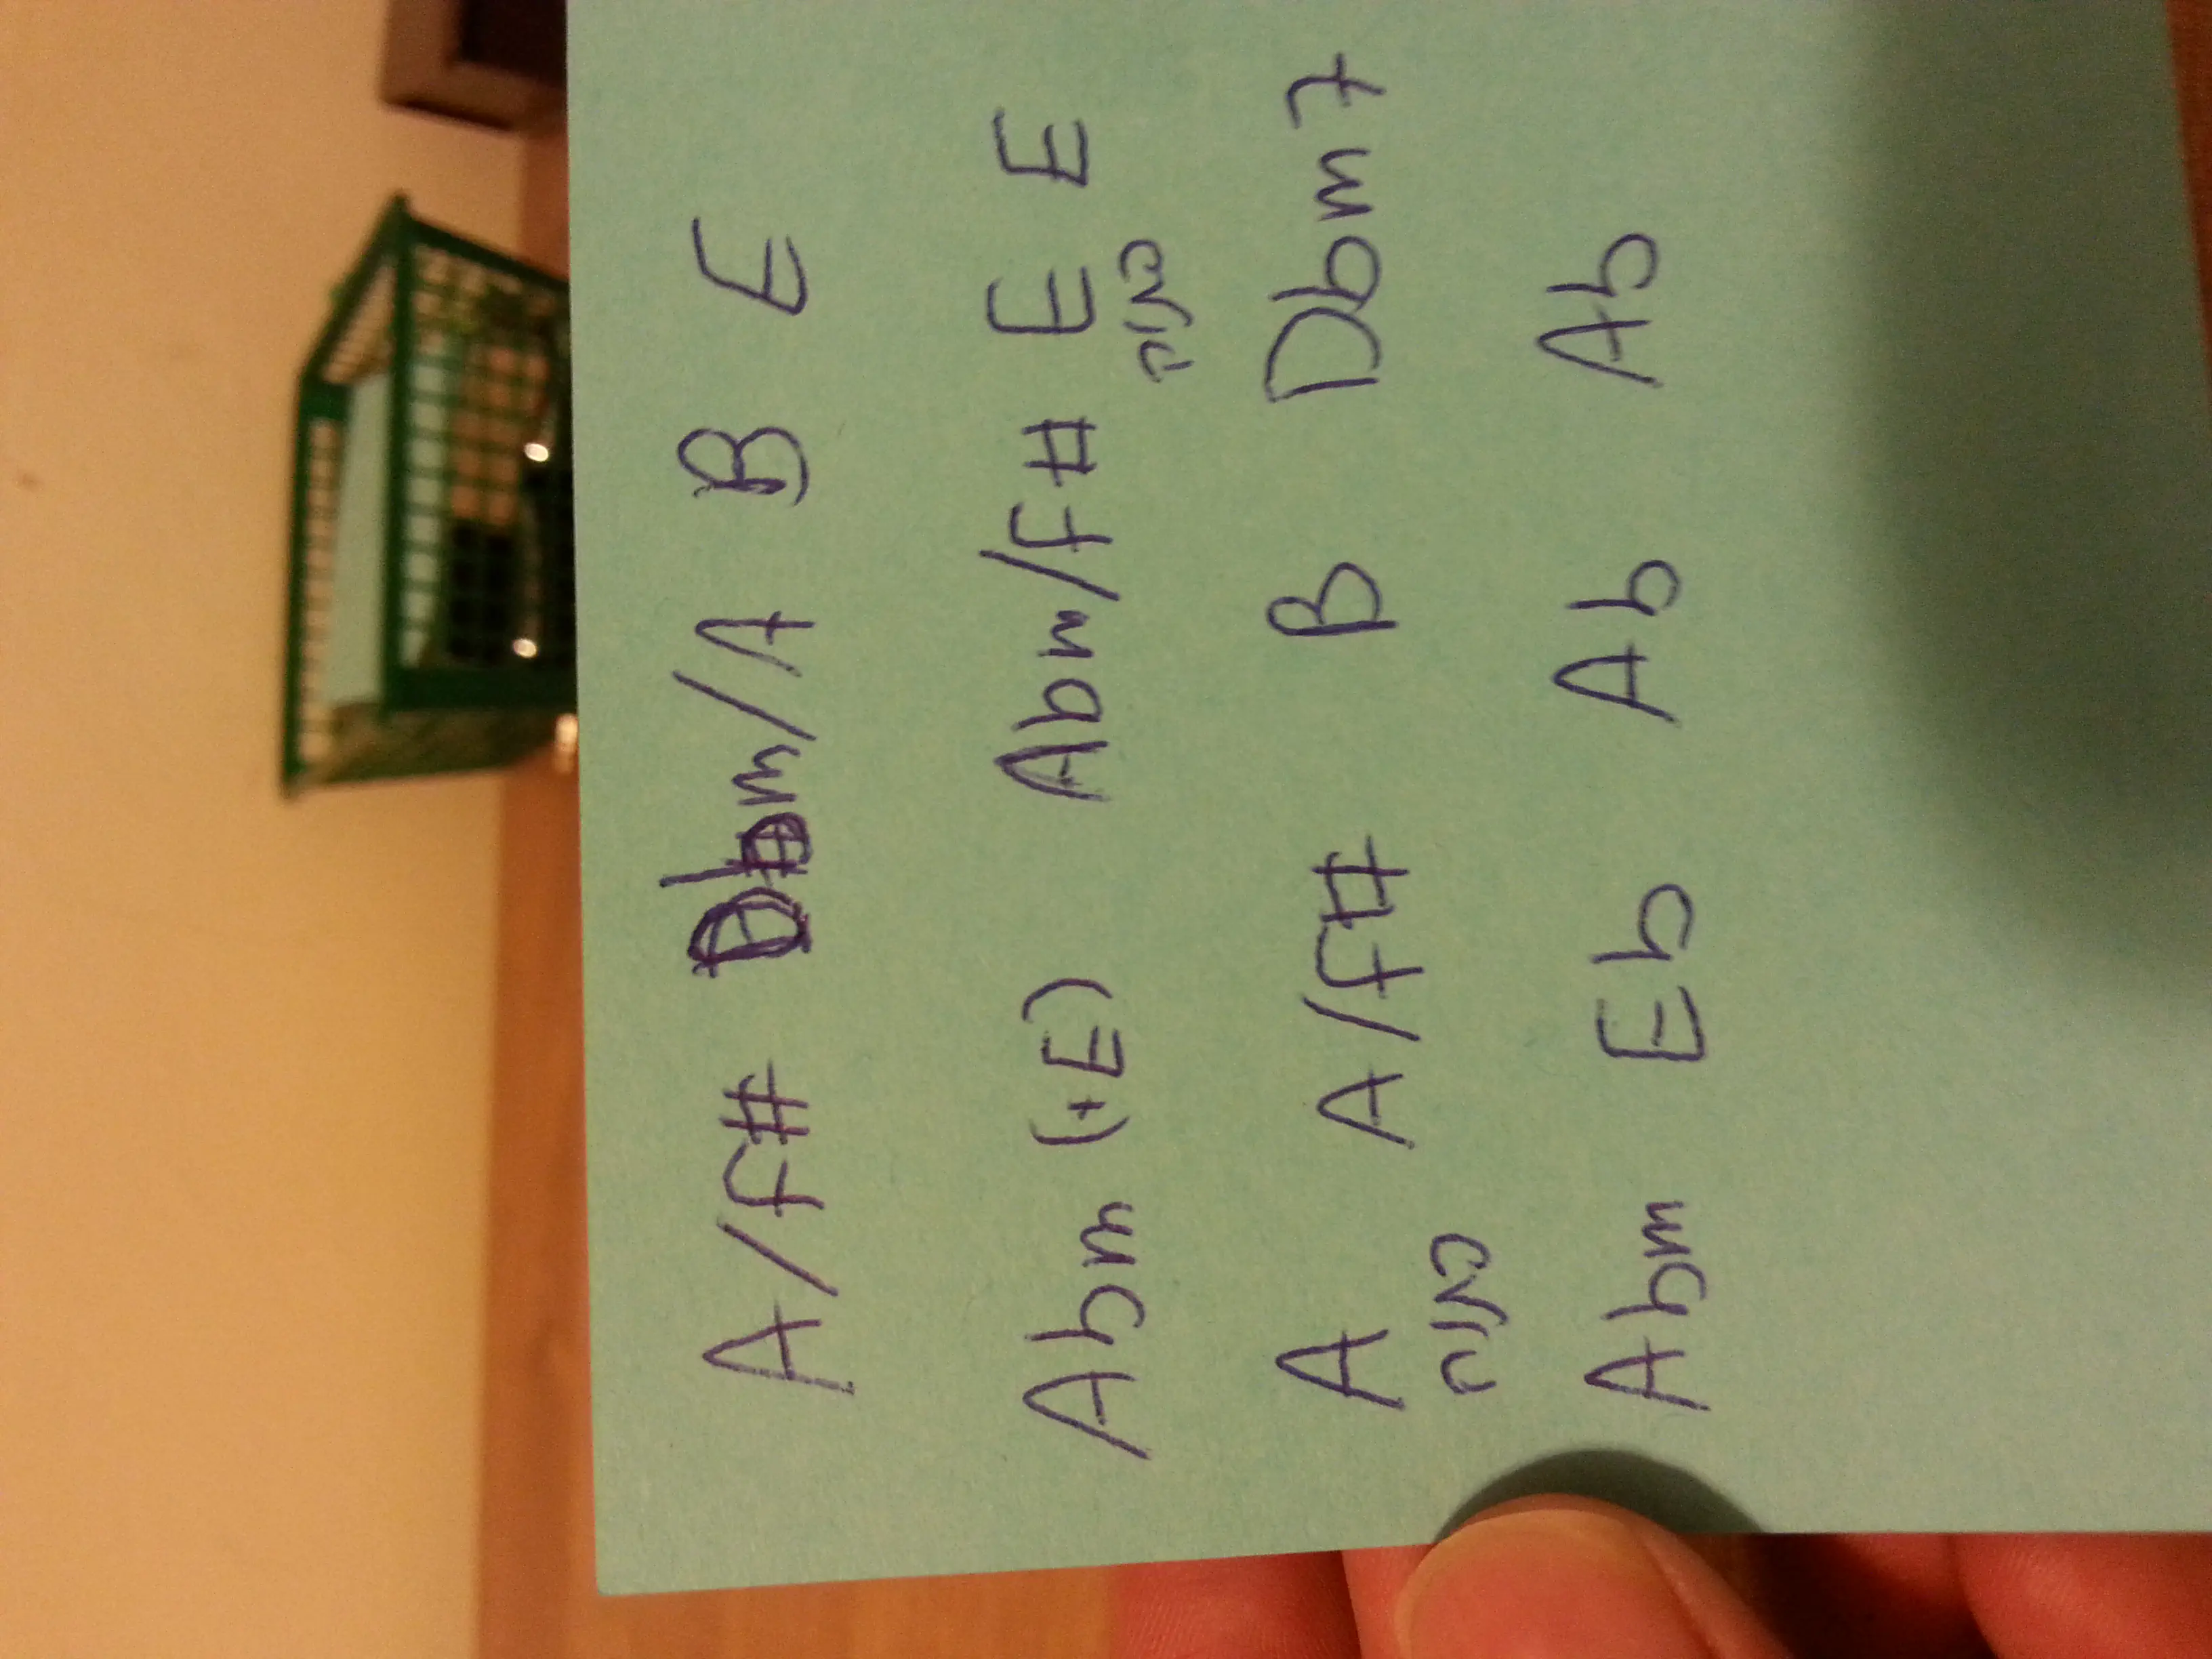 A/F# Dbm/A B E
Abm (+E) Abm/F# E E
מיתר
A A/F# B Dbm7
מיתר
Abm Eb Ab Ab